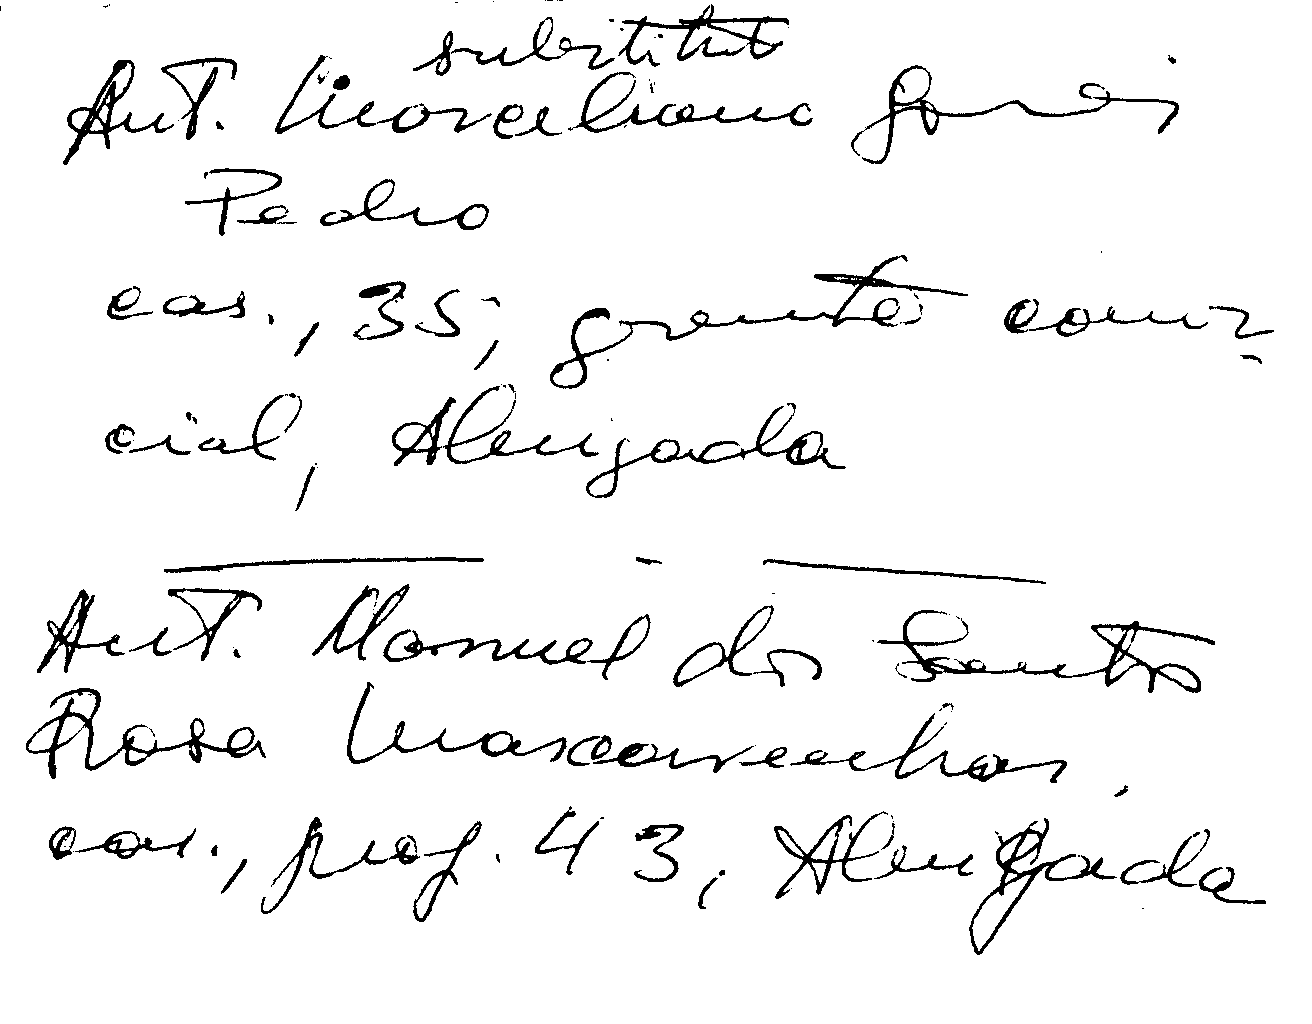 substitut
Ant. Marceliano Gomes
Pedro
cas., 35, gerente comer-
cial, Alenjada
Ant. Manuel dos Santos
Rosa Mascarenhas,
cas., prof. 43, Alengada